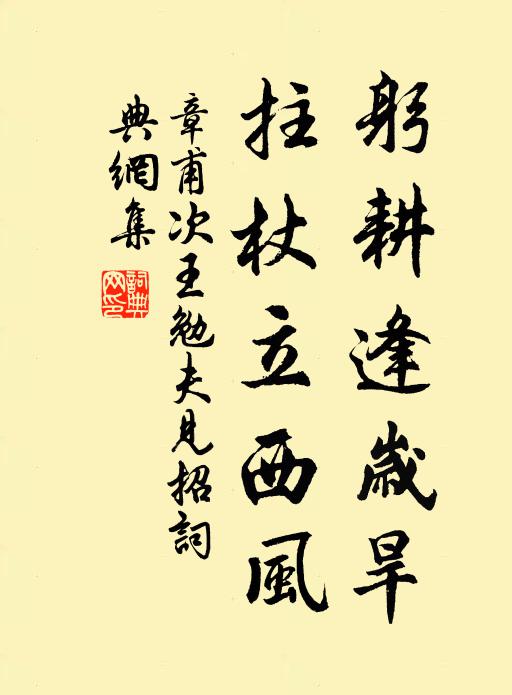 躬耕逢歲旱
拄杖立西風
章甫次王勉夫見招詞
典網集
詞典網印